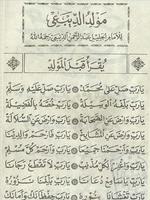 مَوْلِدُ الدِّيبَعِيّ
للإمام الجليل عبد الرحمن الديبعي رحمه الله
يُقْرَأُ قَبْلَ الْمَوْلِدِ
يَارَبِّ صَلِّ عَلَى مُحَمَّدْ يَارَبِّ صَلِّ عَلَيْهِ وَسَلِّمْ
يَارَبِّ بَلِّغْهُ الْوَسِيلَةْ يَارَبِّ خُصَّهُ بِالْفَضِيلَةْ
يَارَبِّ وَارْضَ عَنِ الصَّحَابَةْ يَارَبِّ وَارْضَ عَنِ السُّلَالَةْ
يَارَبِّ وَارْضَ عَنِ الْمَشَايِخْ يَارَبِّ فَارْحَمْ وَالِدِينَا
يَارَبِّ وَارْحَمْنَا جَمِيعًا يَارَبِّ وَارْحَمْ كُلَّ مُسْلِمْ
يَارَبِّ وَاغْفِرْ لِكُلِّ مُذْنِبْ يَارَبِّ لَا تَقْطَعْ رَجَانَا
يَارَبِّ يَاسَامِعْ دُعَانَا يَارَبِّ بَلِّغْنَا نَزُورُهْ
يَارَبِّ تَغْشَانَا بِنُورِهْ يَارَبِّ حِفْظَانَكْ وَأَمَانَكْ